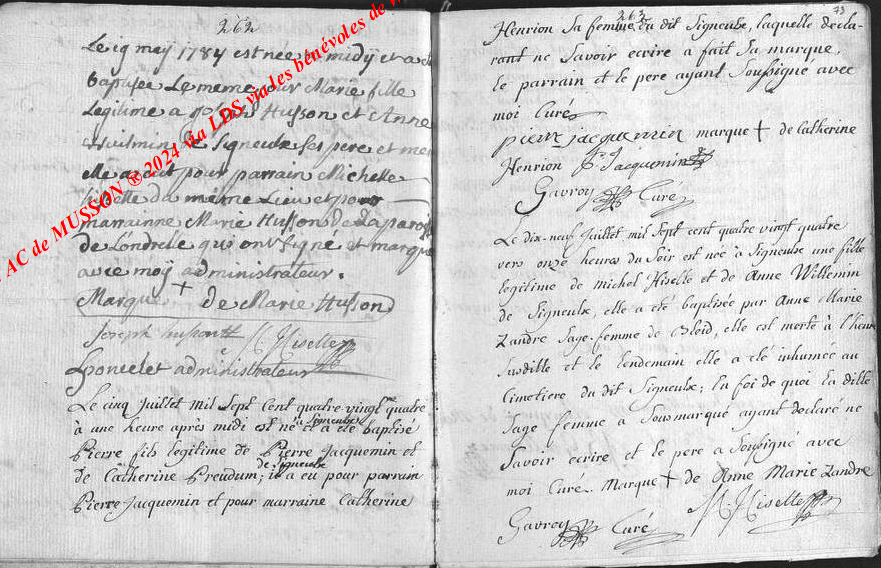 262
Le 19 maÿ 1784 est née a midÿ et a eté
baptisee Le meme jour Marie fille
Legitime a joseph Husson et Anne
Guilmin de Signeulx ses pere et mere
elle a eut pour parrain Michelle
hiselle du même Lieu et pour
marrainne Marie Husson de La paroisse
de Londrele qui ont signe et marqué
avec moÿ administrateur.
Marque + de Marie Husson
Joseph husson M Hiselle
Lponcelet administrateur
Le cinq Juillet mil sept cent quatre vingt quatre
à une heure après midi est né à Signeulx et a été baptisé
Pierre fils legitime de Pierre Jacquemin et
de Catherine Preudum; de Signeulx il a eu pour parrain
Pierre Jacquemin et pour marraine Catherine
AC de MUSSON ® 2024 via LDS via les bénévoles de
73
262
Henrion sa femme du dit Signeulx, laquelle decla-
rant ne savoir ecrire a fait sa marque,
le parrain et le pere ayant soussigné avec
moi Curé
pierre jacquemin marque + de Catherine
Henrion P. Jacquemin
Gavroy Curé
Le dix-neuf Juillet mil sept cent quatre vingt quatre
vers onze heures du soir est née à Signeulx une fille
legitime de michel Hiselle et de Anne Willemin
de Signeulx, elle a été baptisée par Anne Marie
Zandre sage-femme de Bleid, elle est morte à l'heure
susdite et le lendemain elle a été inhumée au
Cimetiere du dit Signeulx; En foi de quoi la ditte
sage femme a sousmarqué ayant declaré ne
savoir ecrire et le pere a soussigné avec
moi Curé. Marque + de Anne Marie Zandre
M Hiselle
Gavroy Curé